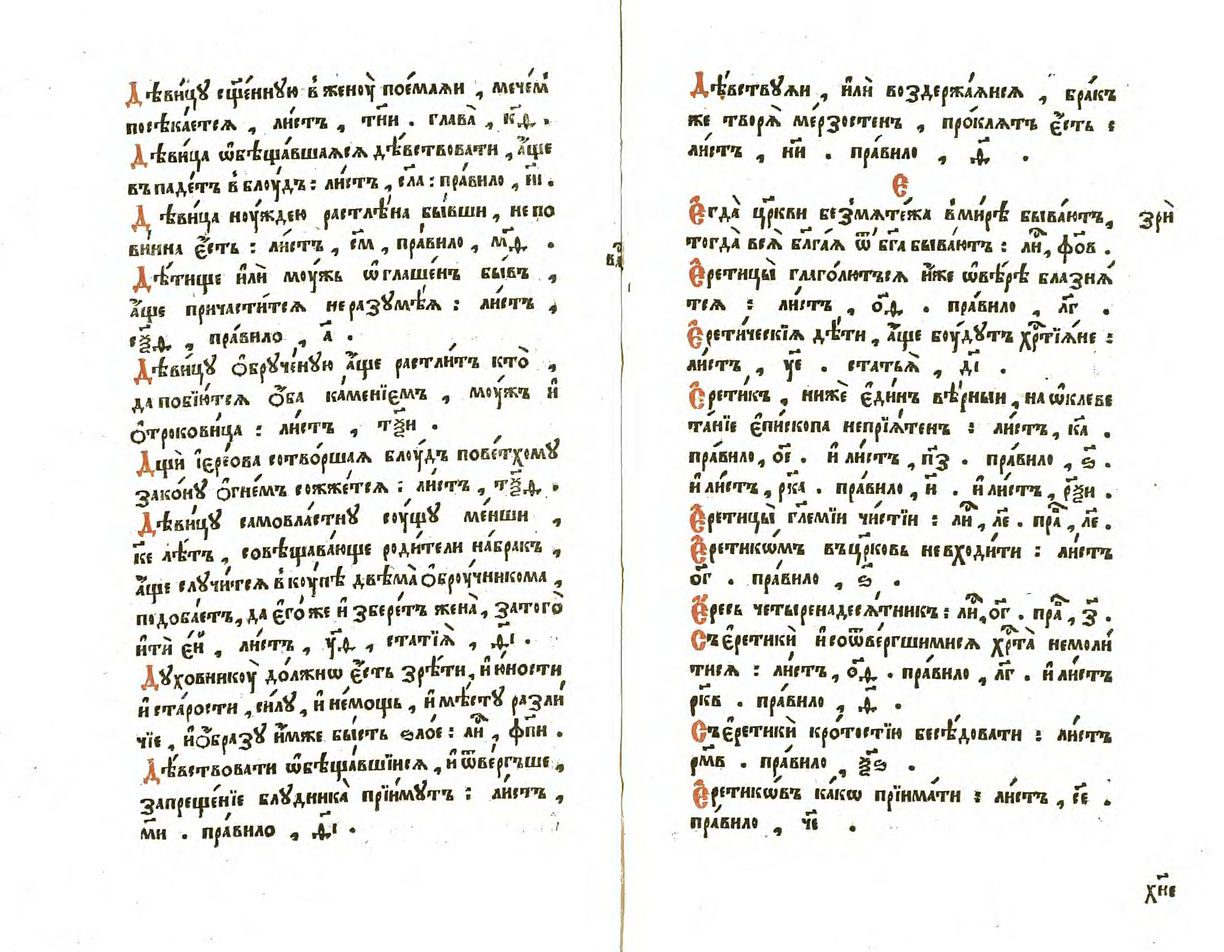 Дѣви́цꙋ сщ҃е́ннꙋю в҆женꙋ̀ пое́маѧи , мече́мъ
посѣка́етсѧ , ли́стъ , тн҃и . глава̀ , к҃д .
Дѣви́ца ѡ҆бѣща́вшаѧсѧ дѣ́вствовати , а҆́ще
въпаде́тъ в҆блоу́дъ : ли́стъ , сл҃а : пра́вило , н҃і .
Дѣви́ца ноу́ждею растлѣ́на бы́вши , непо
ви́нна є҆́сть : ли́стъ , с҃м , пра́вило , м҃д .
Дѣ́тище и҆лѝ моу́жь ѡ҆глаше́нъ бы́въ ,
а҆́ще причасти́тсѧ неразꙋмѣ́ѧ : ли́стъ ,
сѯ҃д , пра́вило , а҃ .
Дѣви́цꙋ ѻ҆брꙋче́нꙋю а҆́ще растли́тъ кто̀ ,
да побїю́тсѧ ѻ҆́ба ка́менїемъ , моу́жъ и҆
ѻ҆трокови́ца : ли́стъ , тѯ҃и .
Дщѝ і҆ере́ова сотво́ршаѧ блоу́дъ пове́тхомꙋ
зако́нꙋ ѻ҆гне́мъ сожже́тсѧ : ли́стъ , тѯ҃д .
Дѣви́цꙋ самовла́стнꙋ соу́щꙋ ме́нши ,
к҃е лѣ́тъ , совѣщава́юще роди́тели на́бракъ ,
а҆́ще слꙋчи́тсѧ в҆коу́пѣ двѣма̀ ѻ҆броу́чникома ,
подоба́етъ , да є҆го́же и҆збере́тъ жена̀ , затого̀
и҆тѝ є҆́й , ли́стъ , у҃д , статїѧ̀ , д҃і .
Дꙋховникоу̀ до́лжно є҆́сть зрѣ́ти , и҆ю́ности
и҆ста́рости , си́лꙋ , и҆не́мощь , и҆мѣ́стꙋ разли́
чїе , и҆ѻ҆́бразꙋ и҆́мже бы́сть ѕло́е : ли́ , фп҃и .
Дѣ́вствовати ѡ҆бѣща́вшїисѧ , и҆ ѿве́ргъше ,
запреще́нїе блꙋдника̀ прїи́мꙋтъ : ли́стъ ,
м҃и . пра́вило , д҃і .
Дѣ́вствꙋѧи , и҆лѝ воздержа́ѧисѧ , бра́къ
же творѧ̀ ме́рзостенъ , про́клѧтъ є҆́сть :
ли́стъ , н҃и . пра́вило , д҃ .
Є
Є҆гда̀ цр҃кви без̾мѧте́жа в҆ми́рѣ быва́ютъ ,
зрѝ
тогда̀ всѧ̀ бл҃га́ѧ ѿ бг҃а быва́ютъ : ли́ , фѻ҃в .
Є҆ретицы̀ глаго́лютьсѧ и҆́же ѡ҆вѣ́рѣ блазнѧ́
тсѧ : ли́стъ , ѻ҃д . пра́вило , л҃г .
Є҆рети́ческїѧ дѣ́ти , а҆́ще боу́дꙋтъ хрⷭ҇тїѧ́не :
ли́стъ , у҃е . статьѧ̀ , д҃і .
Є҆рети́къ , нижѐ є҆ди́нъ вѣ́рныи , на ѡ҆клеве
та́нїе є҆пи́скопа непрїѧ́тенъ : ли́стъ , к҃а .
пра́вило , ѻ҃е . и҆ ли́стъ , п҃з . пра́вило , ѕ҃ .
и҆ ли́стъ , рк҃а . пра́вило , и҃ . и҆ ли́стъ , рѯ҃и .
Є҆ретицы̀ гл҃емїи чи́стїи : ли́ , л҃е . пра́ , л҃е .
Є҆ретикѡ́мъ въцр҃ковь невходи́ти : ли́стъ
ѻ҃г . пра́вило , ѕ҃ .
Є҆́ресь четыренадесѧ́тникъ : ли́ , ѻ҃г . пра́ , з҃ .
Съ є҆ретикѝ и҆ со ѿве́ргшимисѧ хрⷭ҇та̀ немоли́
тисѧ : ли́стъ , ѻ҃д . пра́вило , л҃г . и҆ ли́стъ
рк҃в . пра́вило , д҃ .
Съ є҆ретикѝ кро́тостїю бесѣ́довати : ли́стъ
рм҃в . пра́вило , ѯ҃ѕ .
Є҆ретикѡ́въ ка́кѡ прїима́ти : ли́стъ , с҃е .
пра́вило , ч҃е .
хн҃е